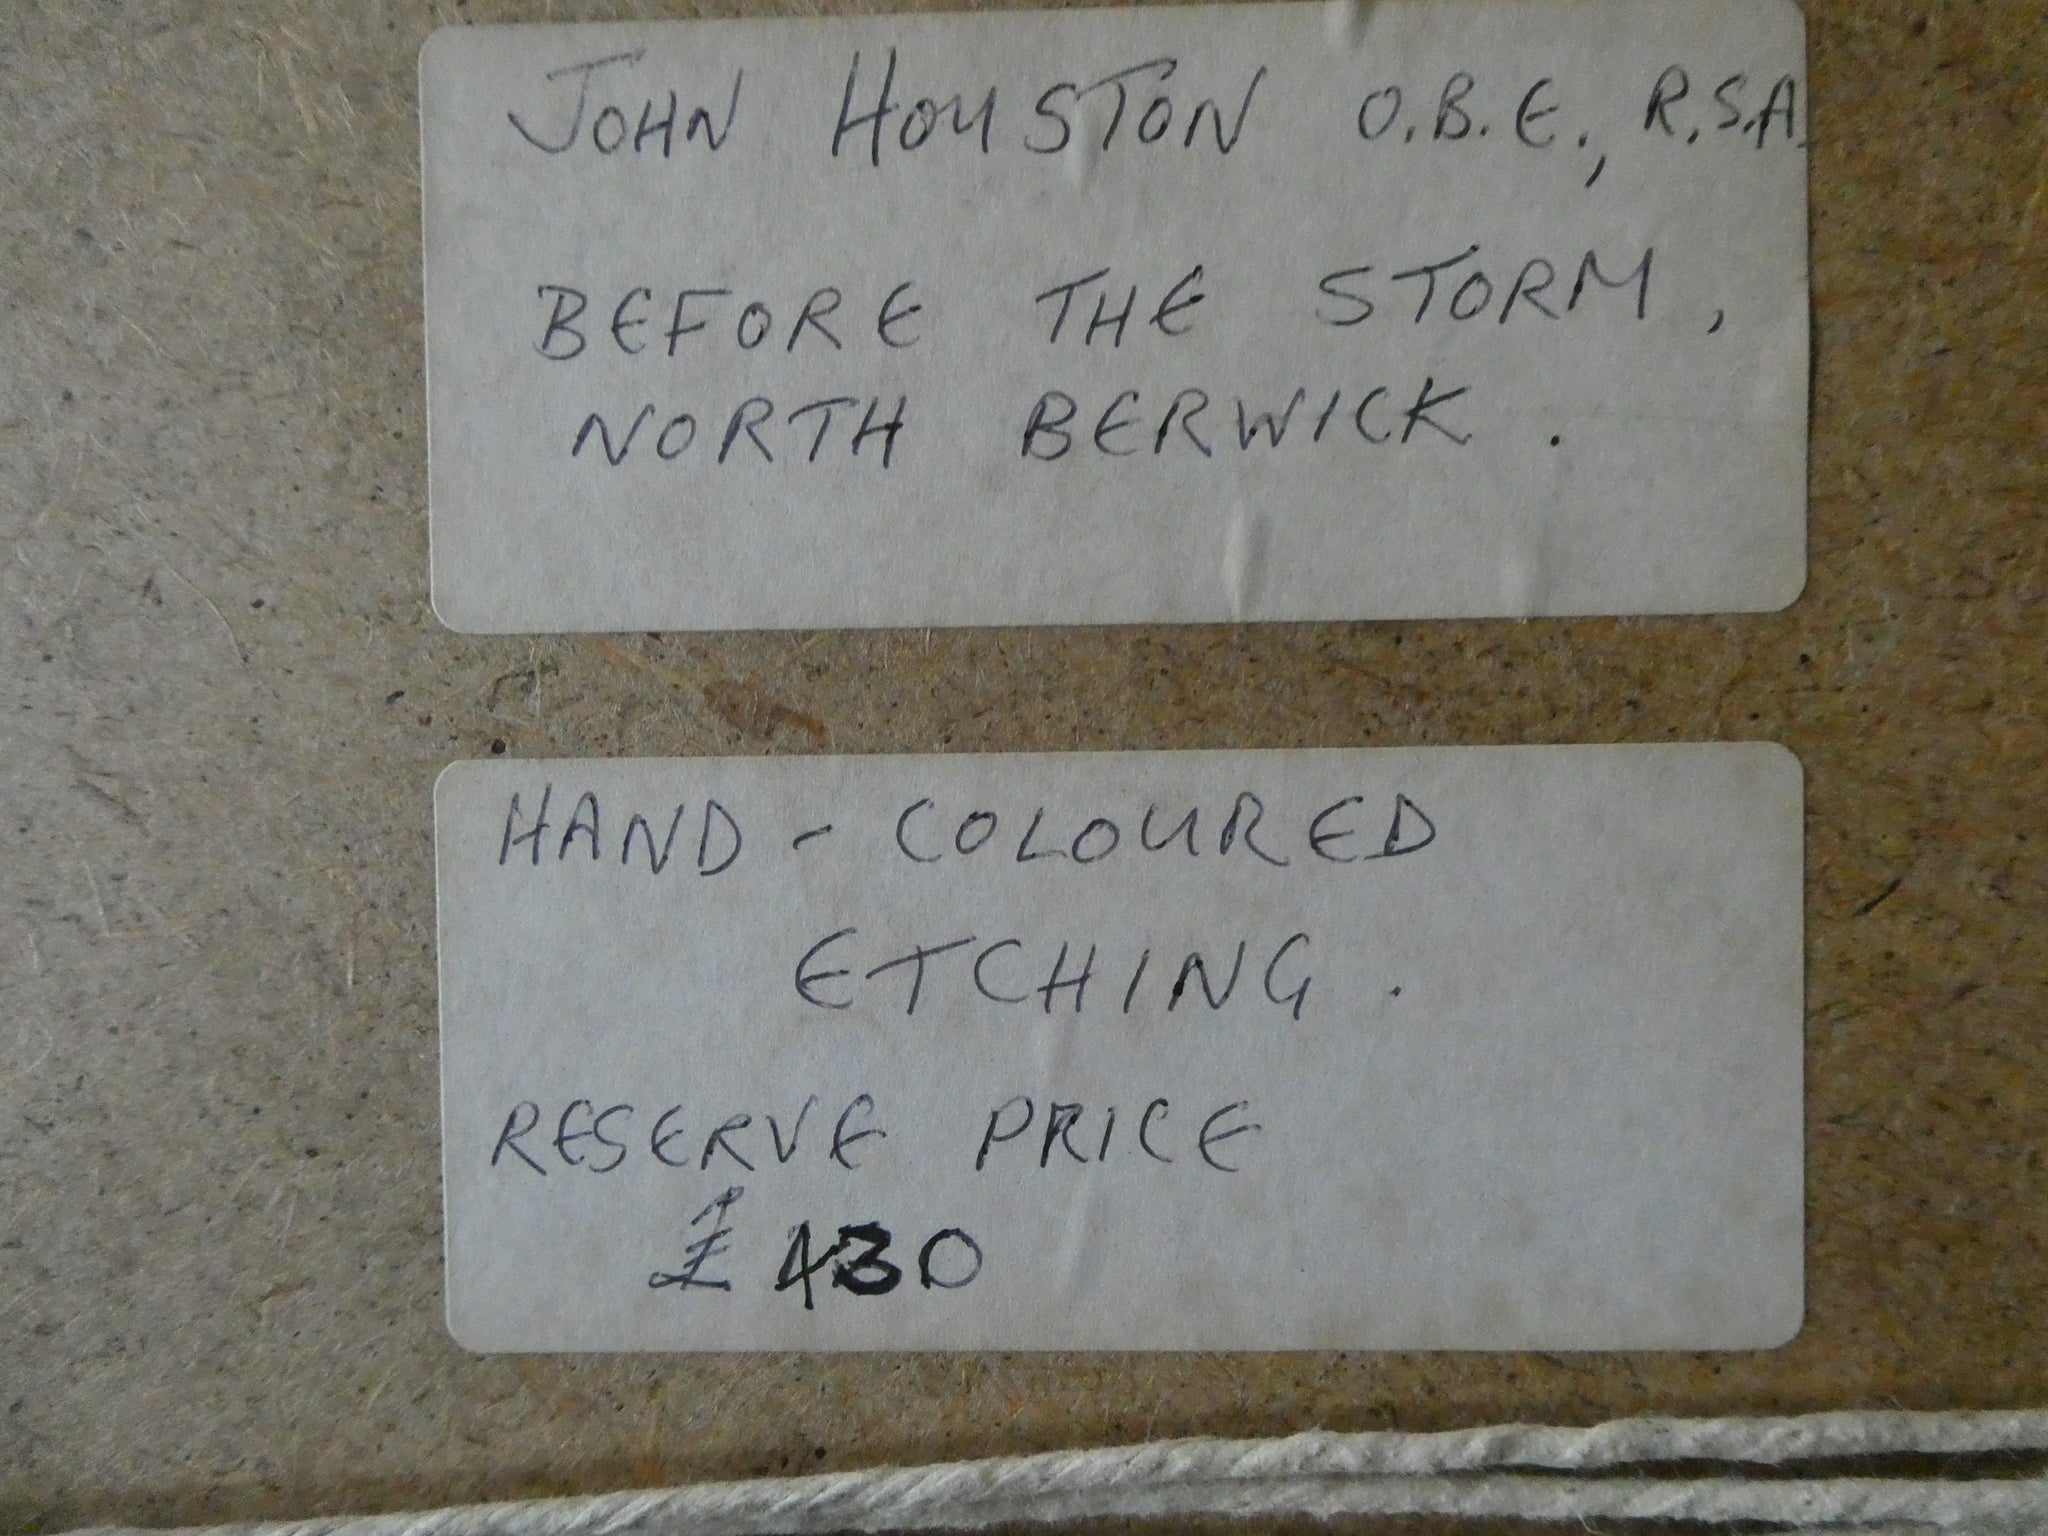 JOHN HOUSTON O.B.E., R.S.A.
BEFORE THE STORM,
NORTH BERWICK.
HAND-COLOURED
ETCHING.
RESERVE PRICE
£430